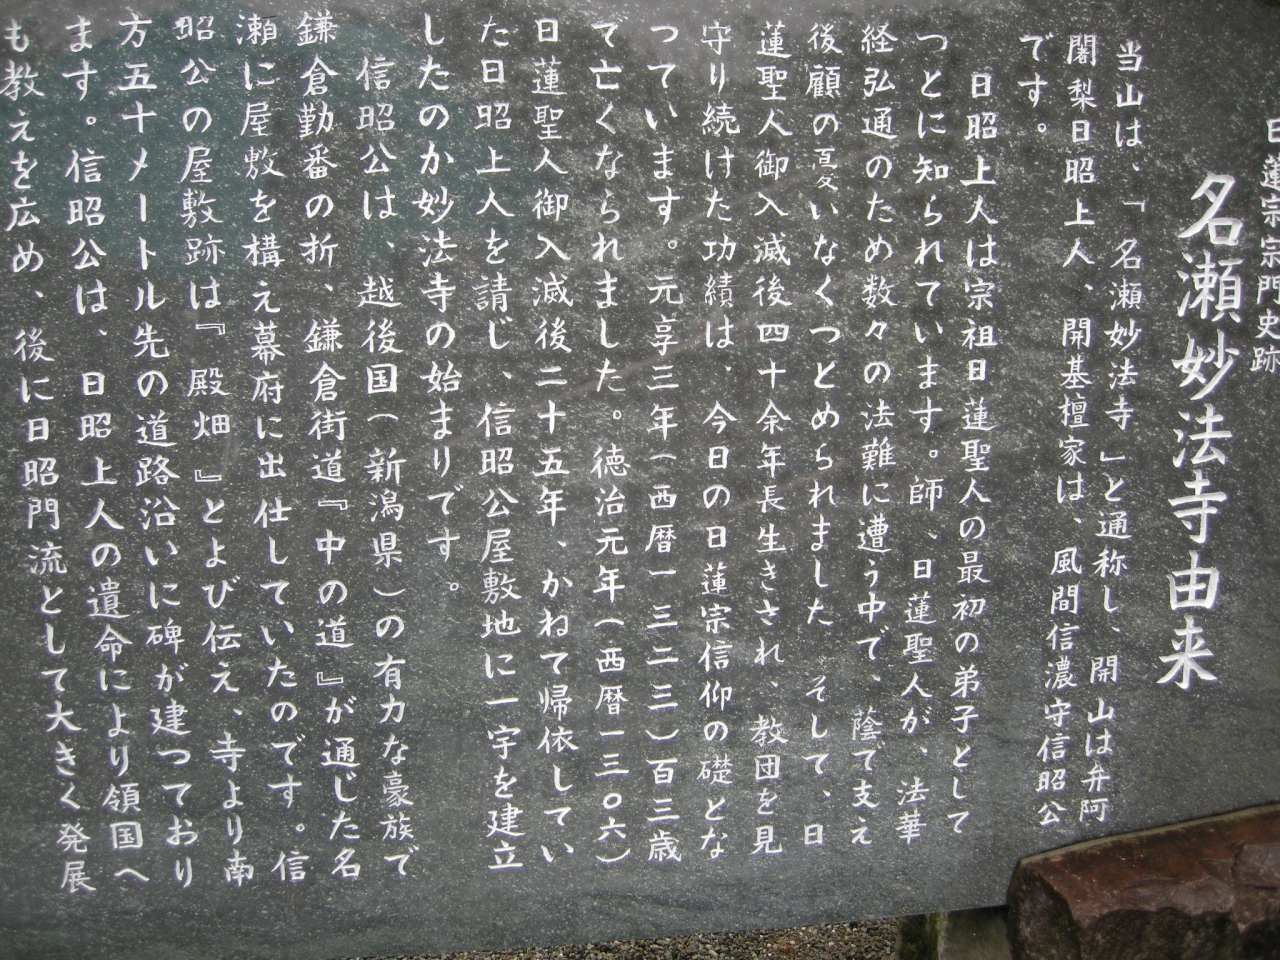 日蓮宗宗門史跡
名瀬妙法寺由来
当山は、「名瀬妙法寺」と通称し、開山は弁阿
闍梨日昭上人、開基檀家は、風間信濃守信昭公
です。
日昭上人は宗祖日蓮聖人の最初の弟子として
つとに知られています。師、日蓮聖人が、法華
経弘通のため数々の法難に遭う中で、蔭で支え
後顧の憂いなくつとめられました そして、日
蓮聖人御入滅後四十余年長生きされ、教団を見
守り続けた功績は、今日の日蓮宗信仰の礎とな
っています。元享三年(西暦一三二三)百三歳
て亡くなられました。徳治元年(西暦一三〇六)
日蓮聖人御入滅後二十五年、かねて帰依してい
た日昭上人を請じ、信昭公屋敷地に一宇を建立
したのか妙法寺の始まりです。
信昭公は、越後国(新潟県)の有力な豪族で
鎌倉勤番の折、鎌倉街道『中の道』が通じた名
瀬に屋敷を構え幕府に出仕していたのです。信
昭公の屋敷跡は『殿畑』とよび伝え、寺より南
方五十メートル先の道路沿いに碑が建つており
ます。信昭公は、日昭上人の遺命により領国へ
も教えを広め、後に日昭門流として大きく発展